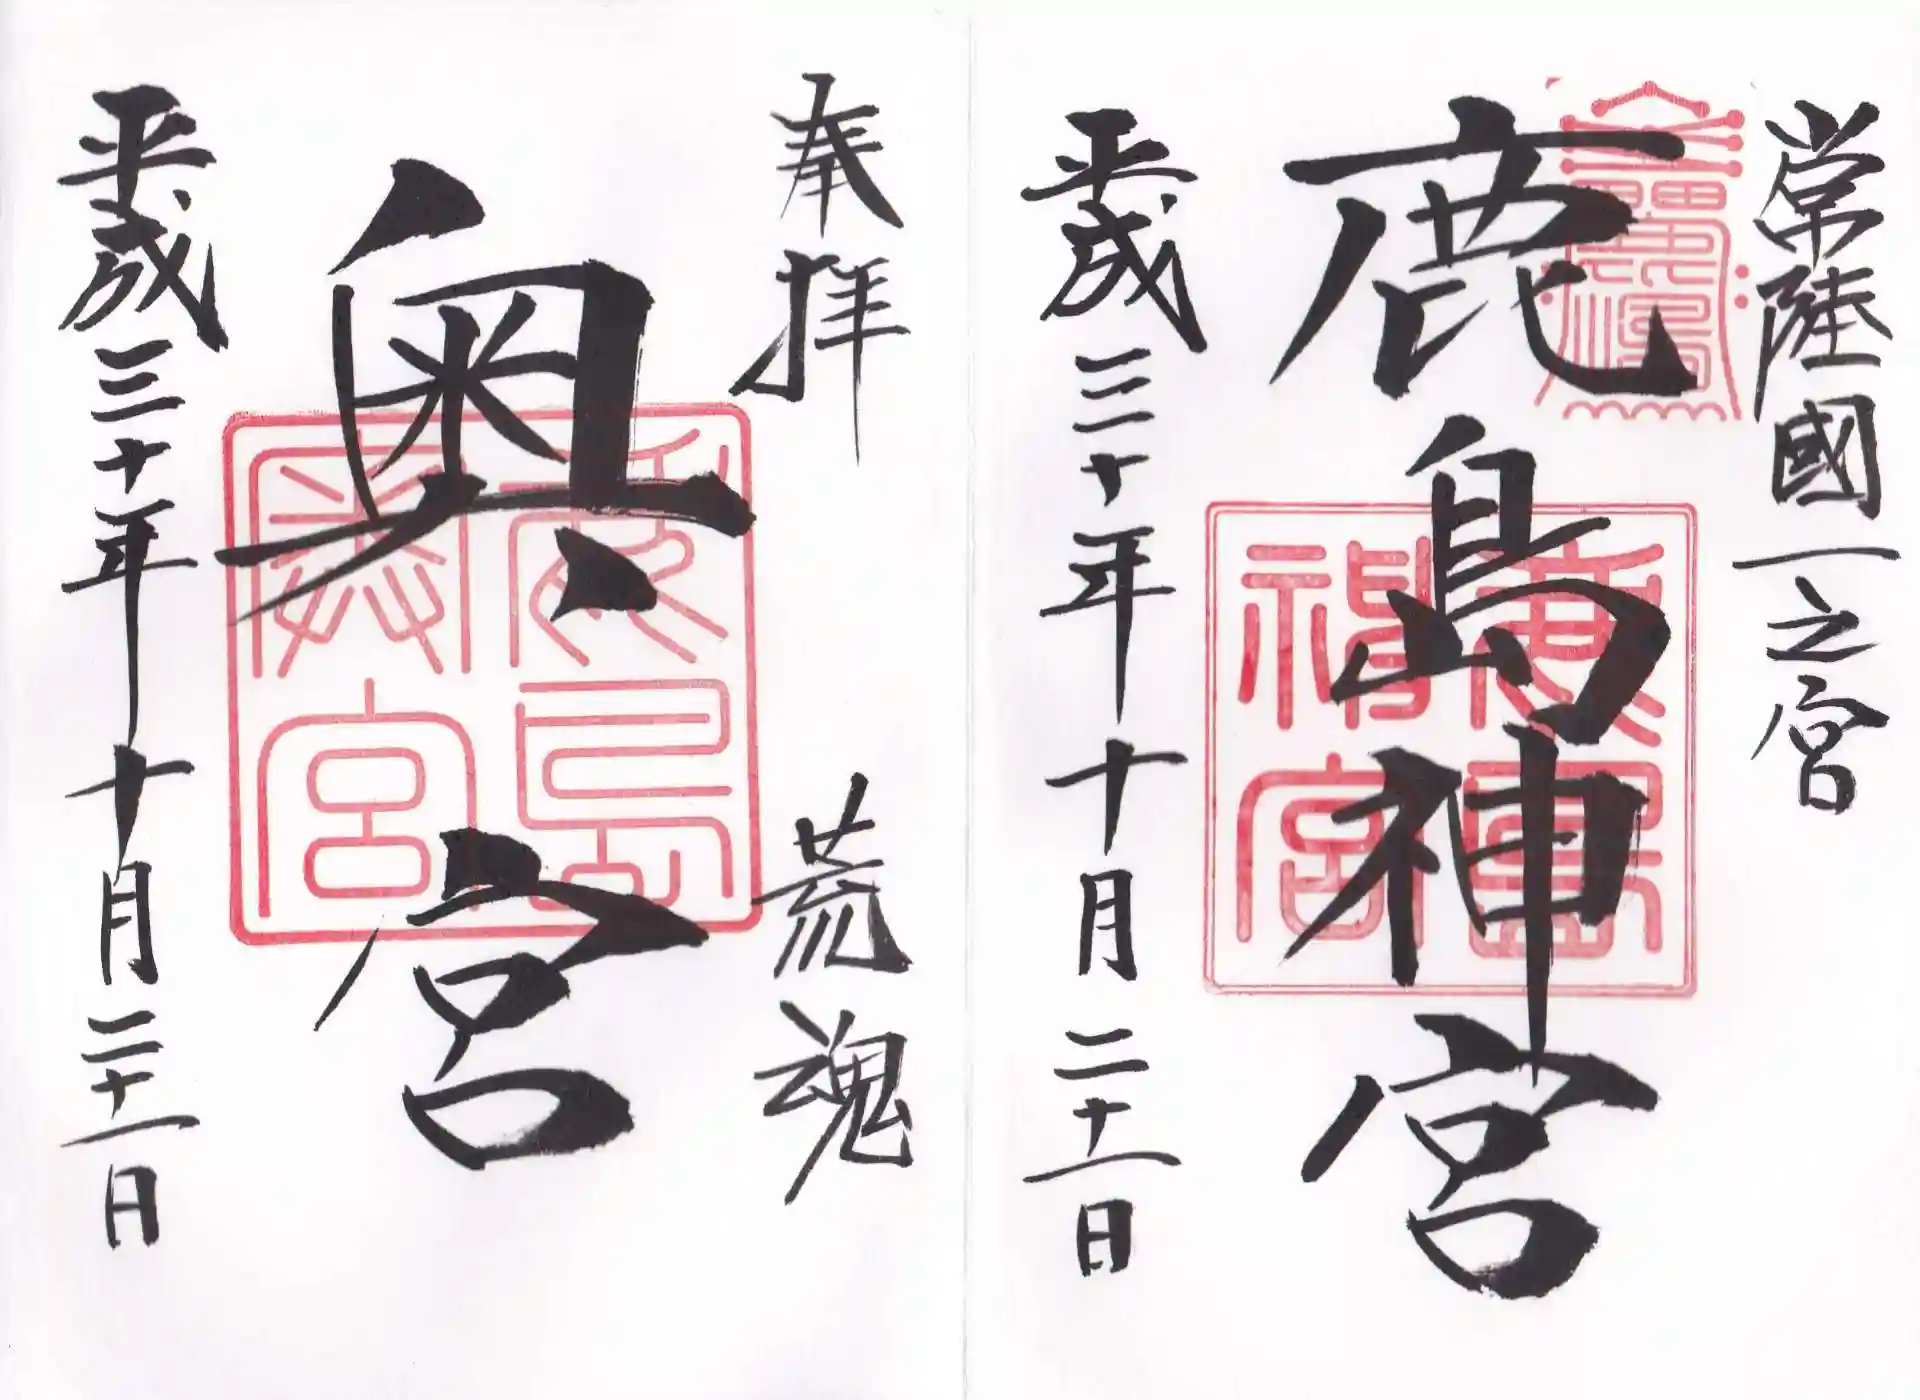 常陸國一之宮
鹿島神宮
平成三十年十月二十一日
鹿島神宮
奉拝
荒魂
奥宮
平成三十年十月二十一日
鹿島奥宮